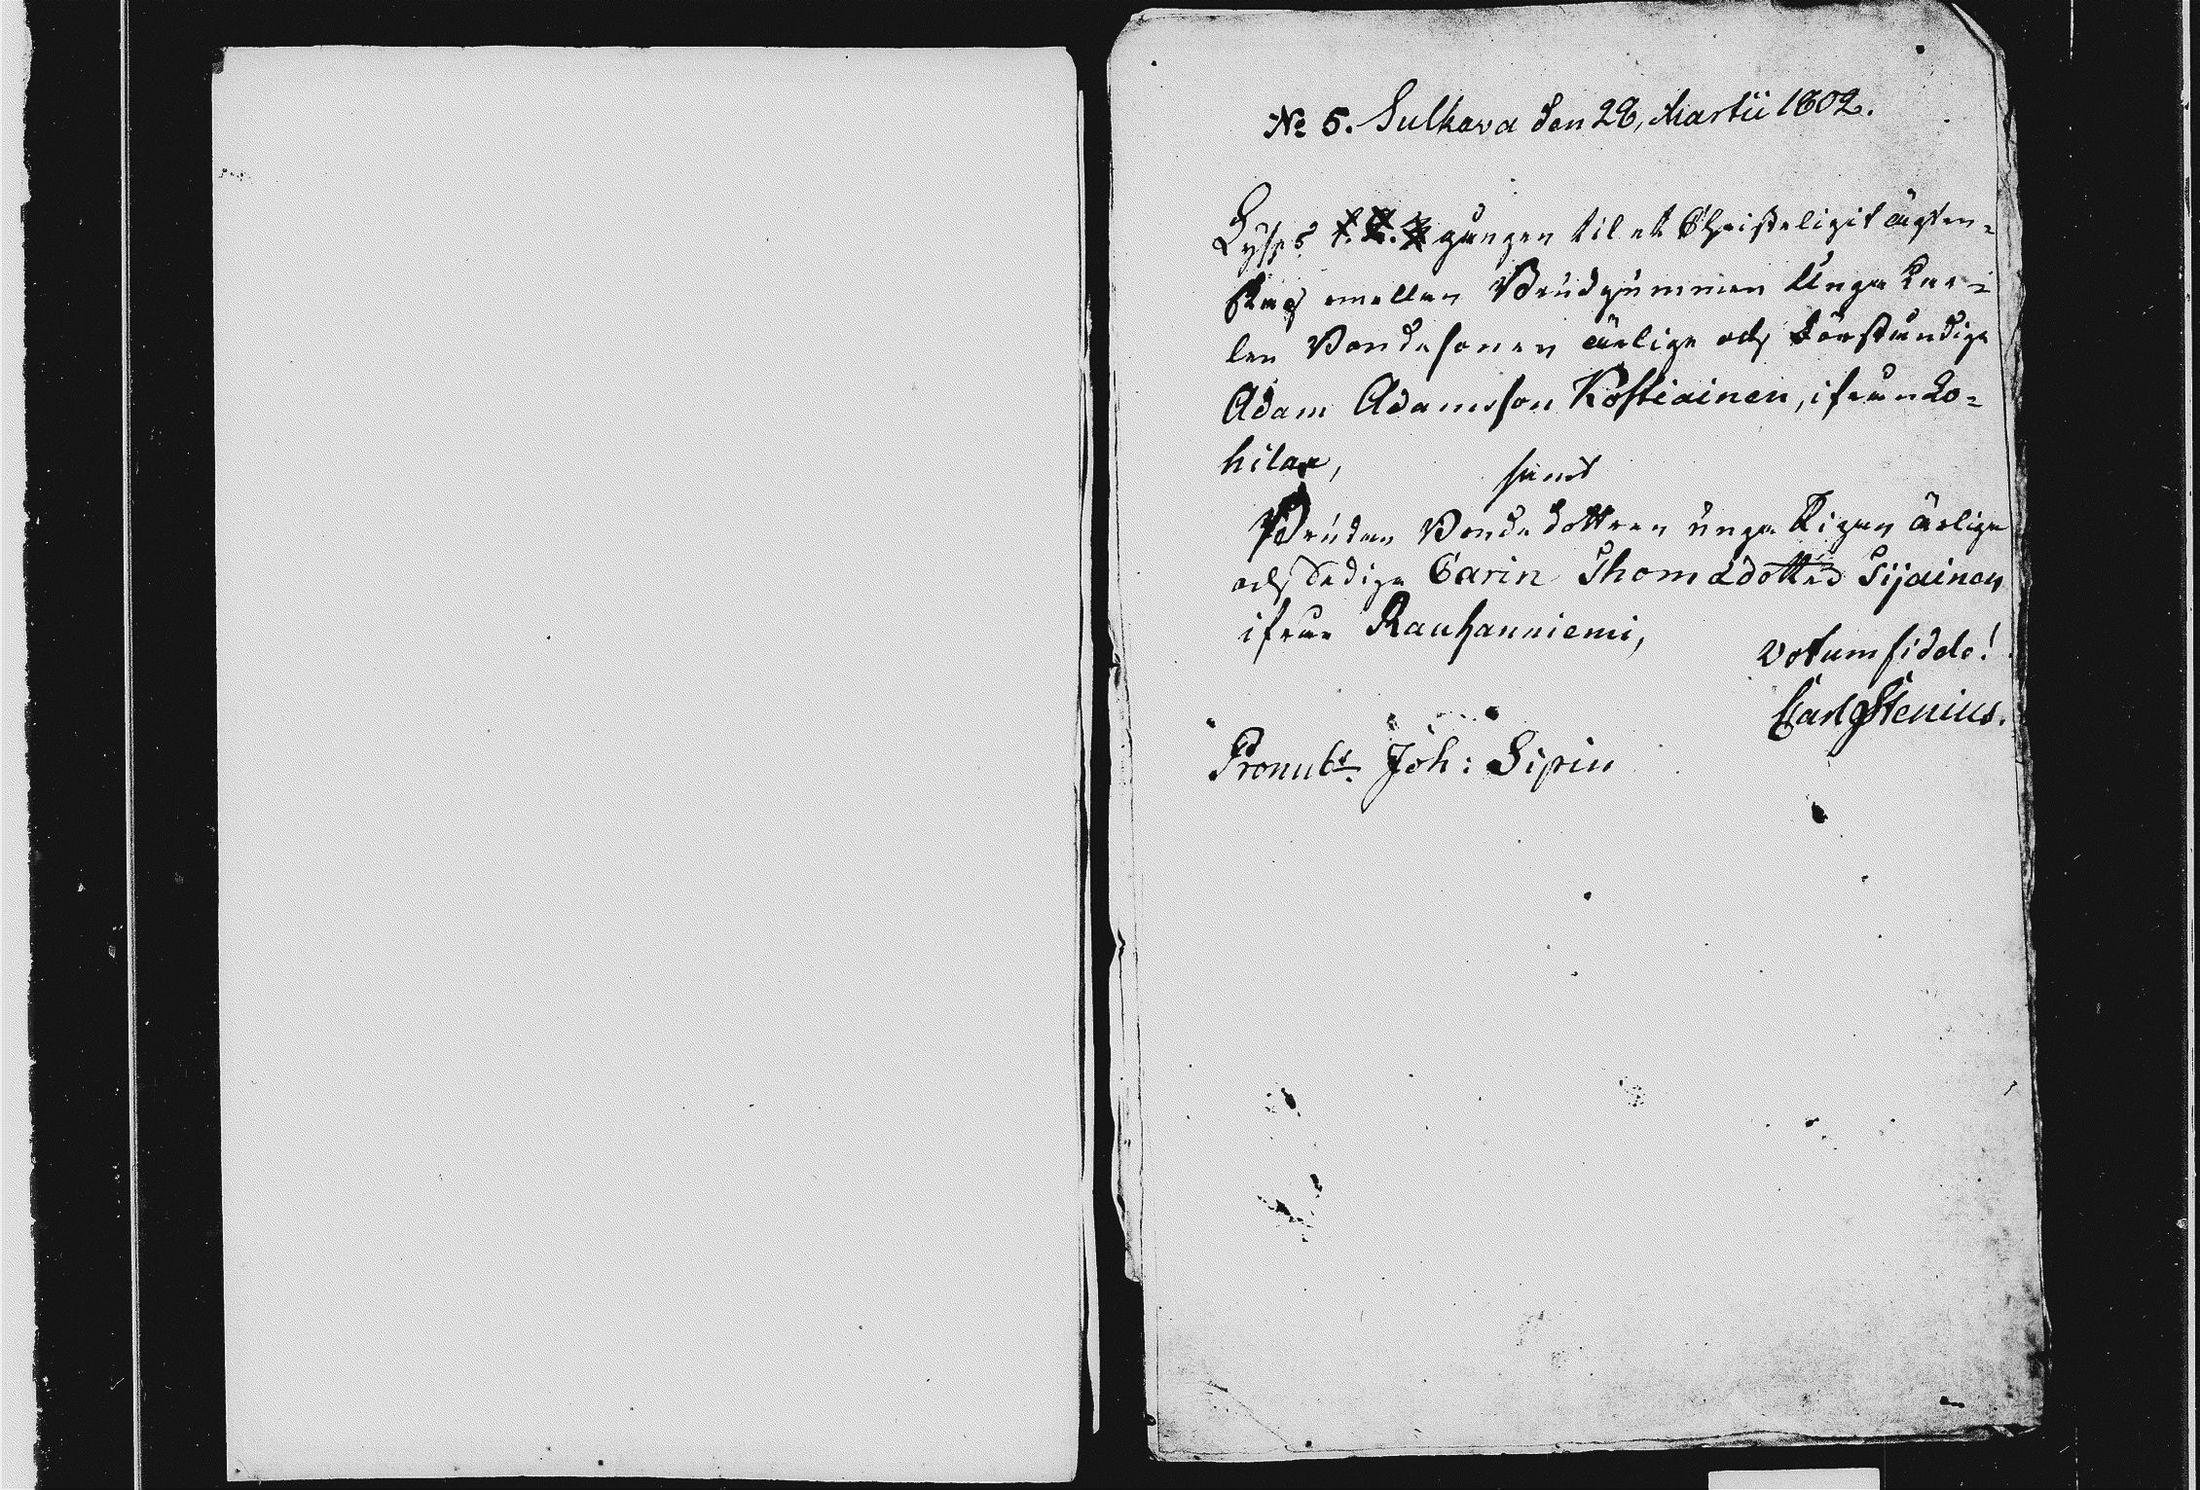 № 5. Sulkava den 28, Martii 1802.
Lyses 1. 2. 3 gången til et Christeligit ägten-
skap emellan Brudgummen Unga Kar-
len Bondesonen ärlige och förståndige
Adam Adamsson Kostiainen, ifrån Lo-
hilax,
samt
Bruden Bondedottren unga Pigan ärliga
och dediga Carin Thomædotter Sijainen
ifrån Rauhanniemi,
Votum fidele!
Carl G Stenius.
Pronubs. Joh: Sipiu